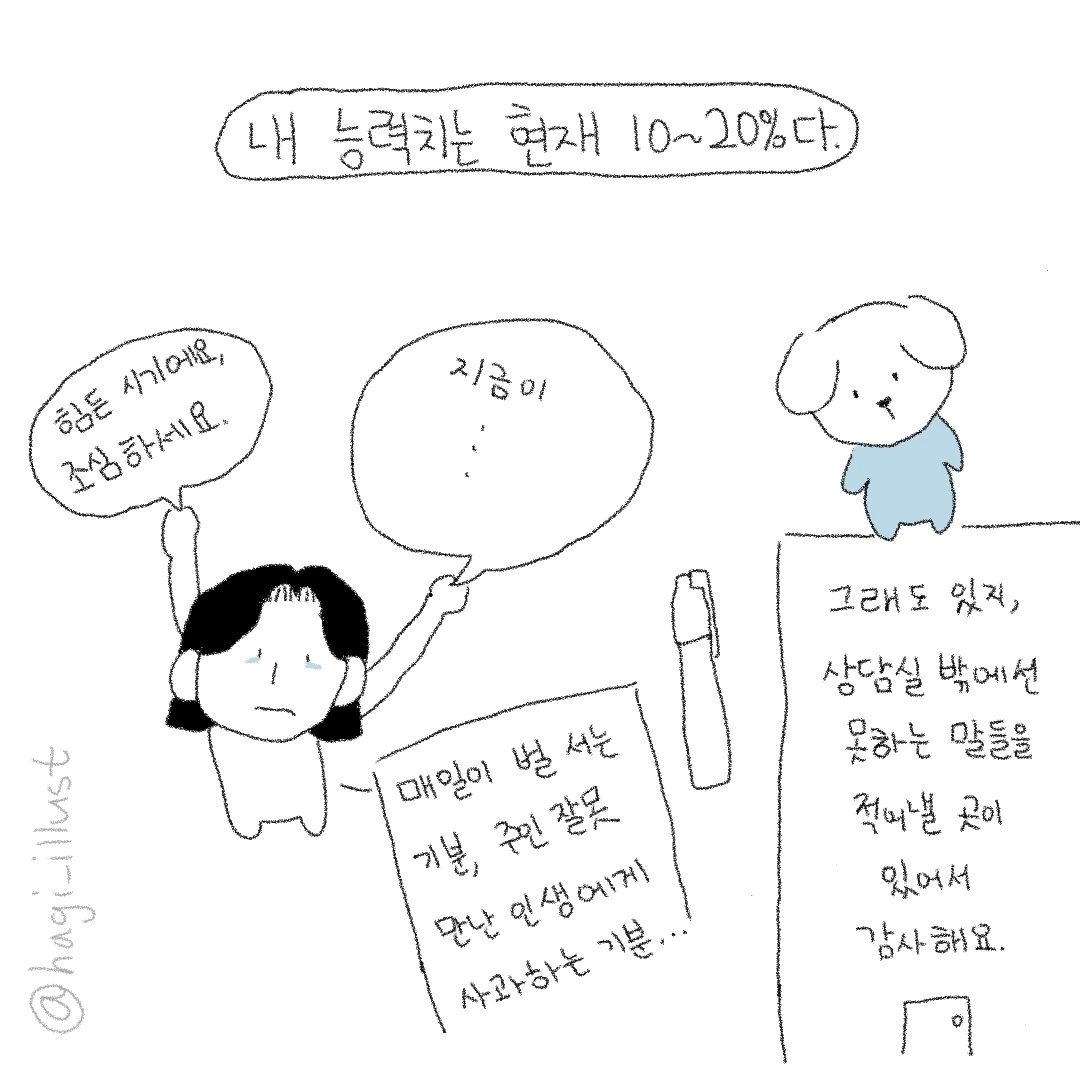 내 능력치는 현재 10~20%다.
힘든 시기에요,
조심하세요.
지금이
...
매일이 벌 서는
기분, 주인 잘못
만난 인생에게
사과하는 기분...
그래도 있지,
상담실 밖에선
못하는 말들을
적어낼 곳이
있어서
감사해요.
@hagi_illust